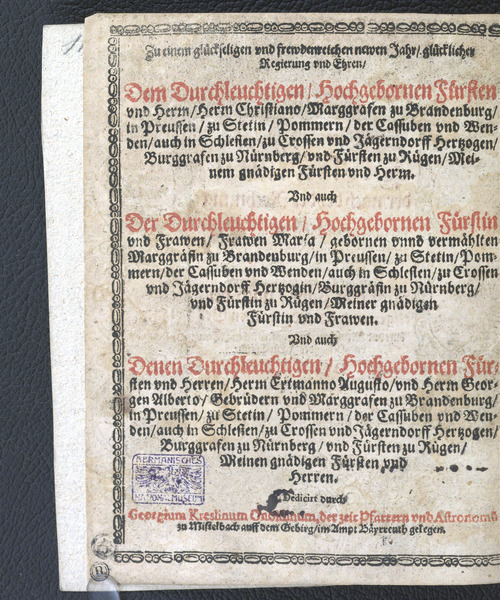 Zu einem glückseligen vnd frewdenreichen newen Jahr/ glücklicher
Regierung vnd Ehren/
Dem Durchleuchtigen / Hochgebornen Fürsten
vnd Herrn/Herrn Christiano/Marggrafen zu Brandenburg/
in Preussen/ zu Stetin/ Pommern/ der Cassuben vnd Wen-
den/auch in Schlesien/zu Crossen vnd Jägerndorff Hertzogen/
Burggrafen zu Nürnberg/vnd Fürsten zu Rügen/Mei-
nem gnädigen Fürsten vnd Herrn.
Vnd auch
Der Durchleuchtigen / Hochgebornen Fürstin
vnd Frawen/ Frawen Maria/ gebornen vnnd vermählten
Marggräfin zu Brandenburg/in Preussen/ zu Stetin/ Pom-
mern/ der Cassuben vnd Wenden/auch in Schlesien/ zu Crossen
vnd Jägerndorff Hertzogin/Burggräfin zu Nürnberg/
vnd Fürstin zu Rügen/Meiner gnädigen
Fürstin vnd Frawen.
Vnd auch
Denen Durchleuchtigen / Hochgebornen Für-
sten vnd Herren/Herrn Ertmanno Augusto/vnd Herrn Geor-
gen Alberto/ Gebrüdern vnd Marggrafen zu Brandenburg/
in Preussen/ zu Stetin/ Pommern / der Cassuben vnd Wen-
den/auch in Schlesien/ zu Crossen vnd Jägerndorff Hertzogen/
Burggrafen zu Nürnberg/ vnd Fürsten zu Rügen/
Meinen gnädigen Fürsten vnd
Herren.
GERMANISCHES
NATIONAL MUSEUM
Dedicirt durch
Georgium Kreslinum der zeit Pfarrern vnd Astronomū
zu Mistelbach auff dem Gebirg/im Ampt Bayreuth gelegen.